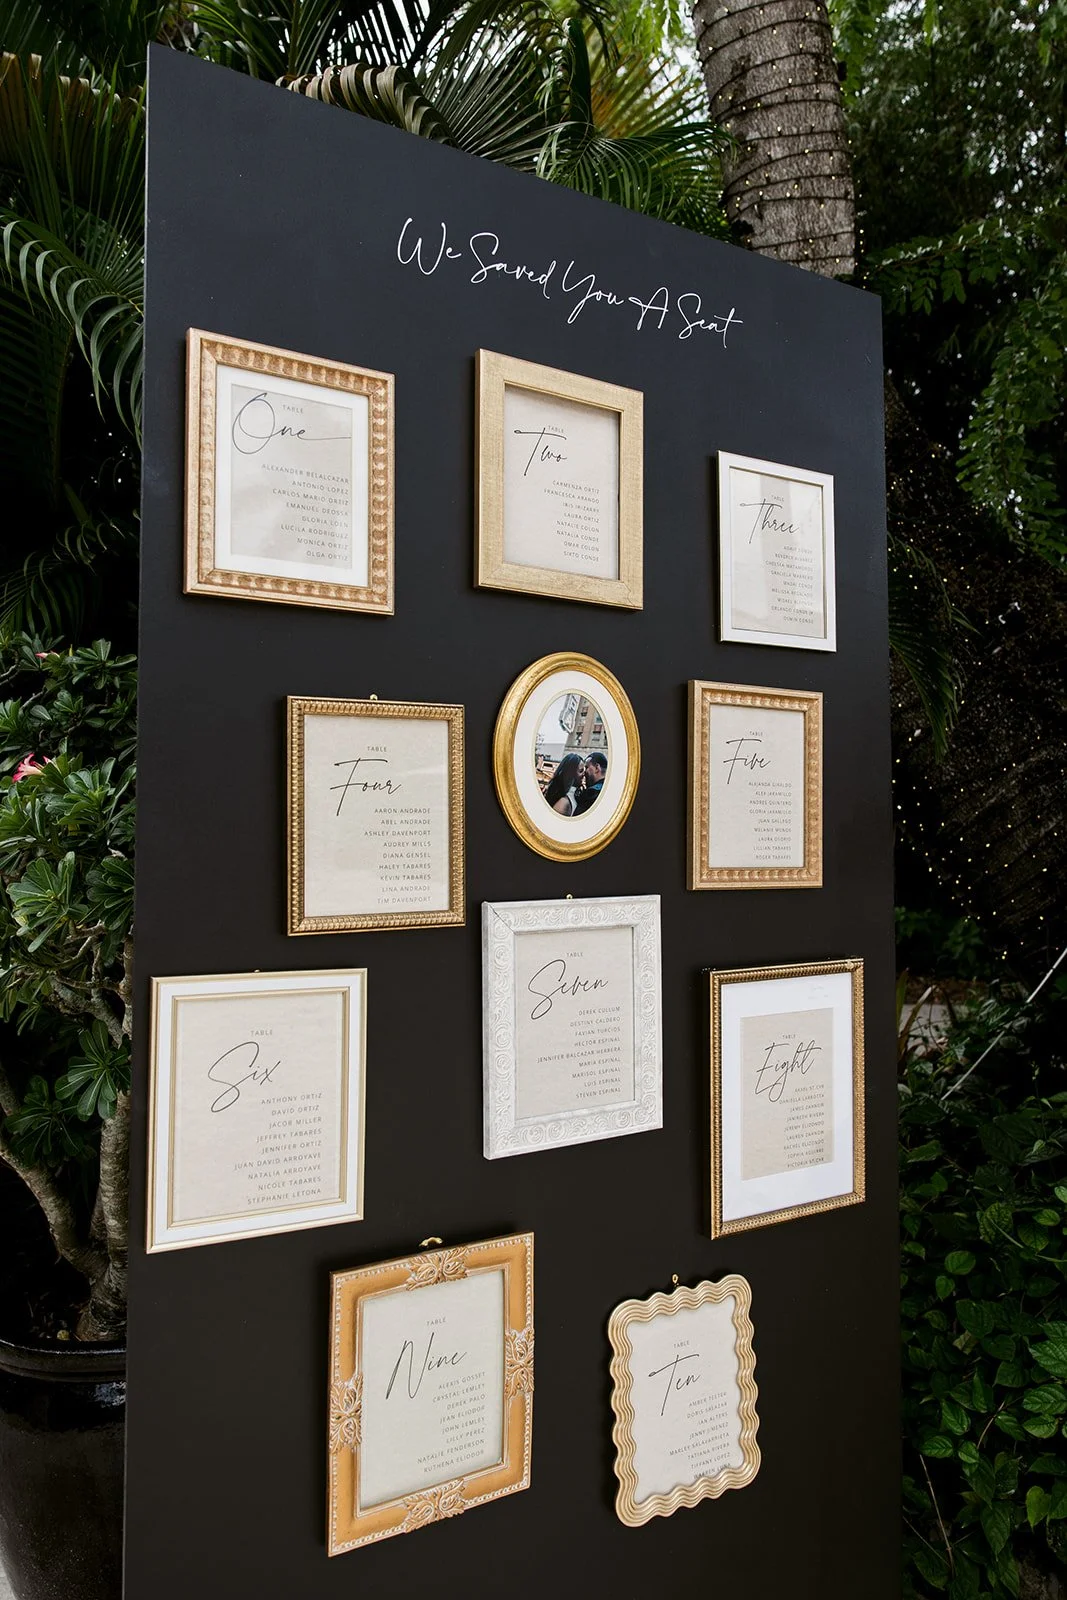 We Saved You A Seat
TABLE
One
ALEXANDER BELALCAZAR
ANTONIO LOPEZ
CARLOS MARIO ORTIZ
EMANUEL DEOSSA
GLORIA LOEN
LUCILA RODRIGUEZ
MONICA ORTIZ
OLGA ORTIZ
TABLE
Two
CARMENZA ORTIZ
FRANCESCA ARANGO
IRIS IRIZARRY
LAURA ORTIZ
NATALIE COLON
NATALIA CONDE
OMAR COLON
SIXTO CONDE
TABLE
Three
CHELSEA MATAMOROS
GRACIELA MARRERO
MAGALI CONDE
ORLANDO CONDE JR
OLWIN CONDE
TABLE
Four
AARON ANDRADE
ABEL ANDRADE
ASHLEY DAVENPORT
AUDREY MILLS
DIANA GENSEL
HALEY TABARES
KEVIN TABARES
LINA ANDRADE
TIM DAVENPORT
TABLE
Five
ALEJANDA GIRALDO
ALEX JARAMILLO
ANDRES QUINTERO
GLORIA JARAMILLO
JUAN GALLEGO
MELANIE MONGE
LAURA OSORIO
LILLIAN TABARES
ROGER TABARES
TABLE
Six
ANTHONY ORTIZ
DAVID ORTIZ
JACOB MILLER
JEFFREY TABARES
JENNIFER ORTIZ
JUAN DAVID ARROYAVE
NATALIA ARROYAVE
NICOLE TABARES
STEPHANIE LETONA
TABLE
Seven
DEREK CULLUM
DESTINY CALDERO
FAVIAN TURCIOS
HECTOR ESPINAL
JENNIFER BALCAZAR HERRERA
MARIA ESPINAL
MARISOL ESPINAL
LUIS ESPINAL
STEVEN ESPINAL
TABLE
Eight
DANIELLA LABBOZZA
JAMES ZANNON
JANIBETH RIVERA
JEREMY ELIZONDO
LAUREN ZANNON
RACHEL ELIZONDO
SOPHIA AGUIRRE
VICTORIA ST CYR
TABLE
Nine
ALEXIS GOSSET
CRYSTAL LEMLEY
DEREK PALO
JEAN ELIODOR
JOHN LEMLEY
LILLY PEREZ
NATALIE FENDERSON
RUTHENA ELIODOR
TABLE
Ten
AMBER TEETER
DORIS SALAZAR
IAN ALTERS
JENNY JIMENEZ
MARLEY SALAVARRIETA
TATIANA RIVERA
TIFFANY LOPEZ
WARREN LUNA